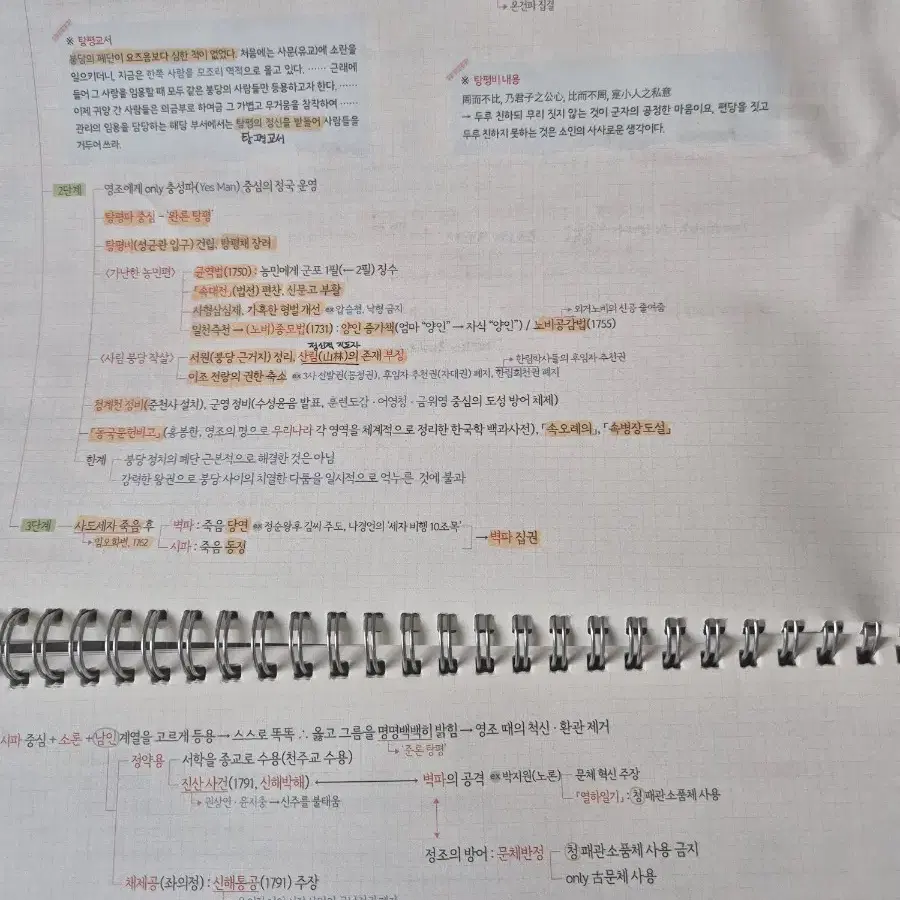 → 온건파 집결
※ 탕평교서
붕당의 폐단이 요즈음보다 심한 적이 없었다. 처음에는 사문(유교)에 소란을
일으키더니, 지금은 한쪽 사람을 모조리 역적으로 몰고 있다. …… 근래에
들어 그 사람을 임용할 때 모두 같은 붕당의 사람들만 등용하고자 한다. ……
이제 귀양 간 사람들은 의금부로 하여금 그 가볍고 무거움을 참작하여 ……
관리의 임용을 담당하는 해당 부서에서는 탕평의 정신을 받들어 사람들을
거두어 쓰라.
탕평교서
※ 탕평비 내용
周而不比, 乃君子之公心, 比而不周, 寔小人之私意
→ 두루 친하되 무리 짓지 않는 것이 군자의 공정한 마음이요, 편당을 짓고
두루 친하지 못하는 것은 소인의 사사로운 생각이다.
2단계 영조에게 only 충성파(Yes Man) 중심의 정국 운영
탕평파 중심 - '완론 탕평'
탕평비(성균관 입구) 건립, 탕평채 장려
〈가난한 농민편〉 균역법(1750) : 농민에게 군포 1필(← 2필) 징수
「속대전」(법전) 편찬, 신문고 부활
사형삼심제, 가혹한 형벌 개선 ex 압슬형, 낙형 금지
→ 외거노비의 신공 줄여줌
일천즉천 → (노비)종모법(1731) : 양인 증가책(엄마 "양인" → 자식 "양인") / 노비공감법(1755)
정신적 지도자
〈사림 붕당 작살〉 서원(붕당 근거지) 정리, 산림(山林)의 존재 부정
→ 한림학사들의 후임자 추천권
이조 전랑의 권한 축소 ex 3사 선발권(통청권), 후임자 추천권(자대권) 폐지, 한림회천권 폐지
청계천 정비(준천사 설치), 군영 정비(수성윤음 발표, 훈련도감·어영청·금위영 중심의 도성 방어 체제)
「동국문헌비고」(홍봉한, 영조의 명으로 우리나라 각 영역을 체계적으로 정리한 한국학 백과사전), 「속오례의」, 「속병장도설」
한계 붕당 정치의 폐단 근본적으로 해결한 것은 아님
강력한 왕권으로 붕당 사이의 치열한 다툼을 일시적으로 억누른 것에 불과
3단계 사도세자 죽음 후 벽파 : 죽음 당연 ex 정순왕후 김씨 주도, 나경언의 '세자 비행 10조목'
→ 벽파 집권
→ 임오화변, 1762 시파 : 죽음 동정
시파 중심 + 소론 + 남인 계열을 고르게 등용 → 스스로 똑똑 ∴ 옳고 그름을 명명백백히 밝힘 → 영조 때의 척신·환관 제거
'준론 탕평'
정약용 서학을 종교로 수용(천주교 수용)
진산 사건(1791, 신해박해) ↔ 벽파의 공격 ex 박지원(노론) 문체 혁신 주장
→ 권상연·윤지충 → 신주를 불태움
「열하일기」 : 청 패관소품체 사용
정조의 방어 : 문체반정 청 패관소품체 사용 금지
only 古문체 사용
채제공(좌의정) : 신해통공(1791) 주장